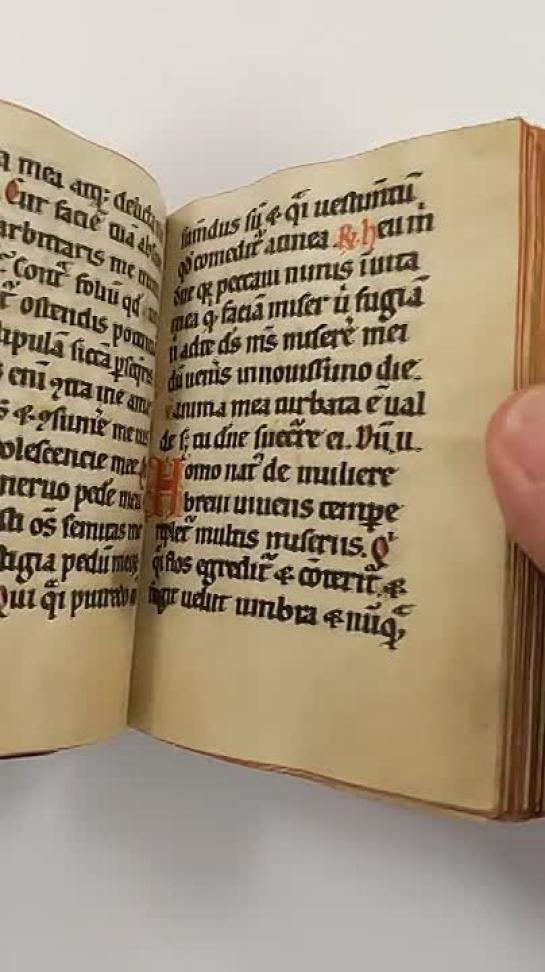 a mea atq; delicta
Cur faciē tuā abs
arbitraris me in
Cont̄ foliū qd
ostendis poten
stipulā siccā ꝑseq̄ris
enī ɔtra me ama
⁊ ɔsumē me
olescencie mee
neruo pedē meū
sti oēs semitas me
tigia pedū meoꝝ
Qui q̄i putredo
sumēdus sū ⁊ q̄i uestimētū
qd̓ comedit᷑ a tinea ℟. heu m̄
dn̄e qꝛ peccaui nimis ī uita
mea q̓ faciā miser ū fugiā
n̄ ad te ds̄ ms̄ miserē mei
dū uen̓is in nouissimo die.
anima mea turbata ē ual
de s; tu dn̄e succ̄re ei. V̄. N̄ .
Homo nat᷒ de muliere
breui uiuens tempe
replet᷑ multis miseriis. Q
q̄i flos egredit᷑ ⁊ cōterit᷑ ⁊
fugit uelut umbra ⁊ nūq̄